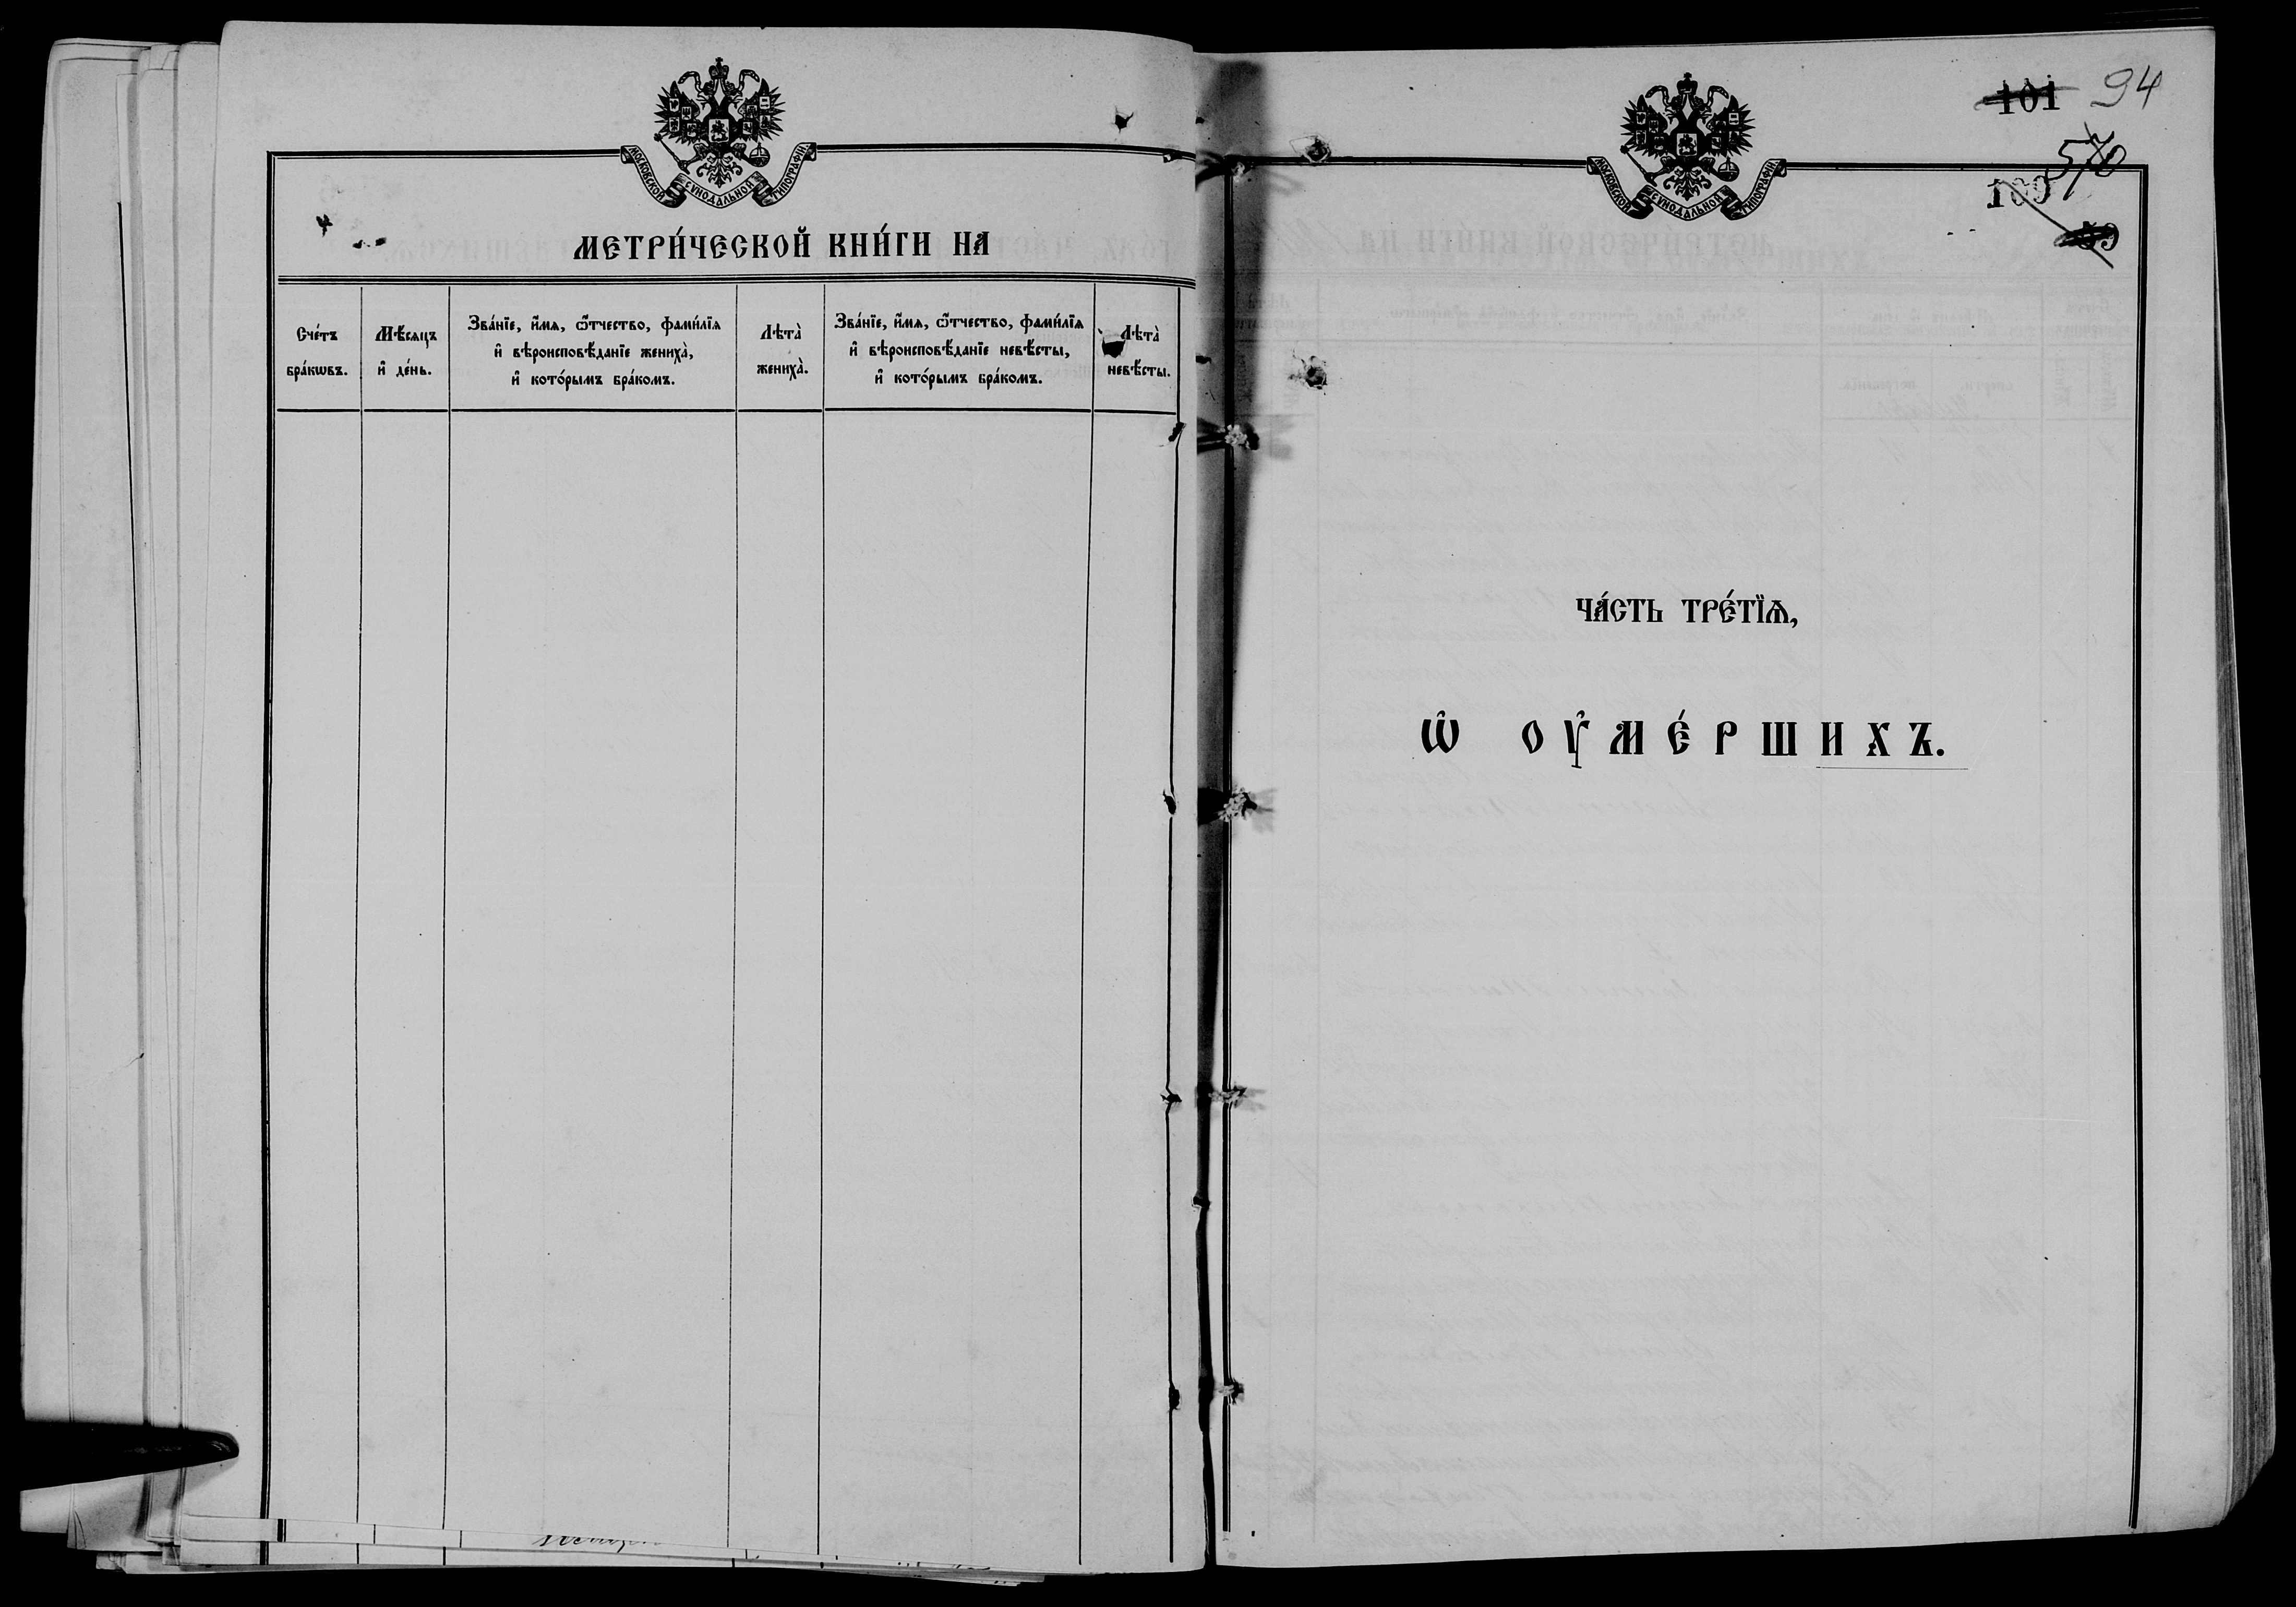 МОСКОВСКОЙ СѴНОДАЛЬНОЙ ТИПОГРАФІИ.
МЕТРИ́ЧЕСКОЙ КНИ́ГИ НА
Сче́тъ бра́кѡвъ.
Мѣ́сяцъ и҆ де́нь.
Зва́нїе, и҆́мѧ, ѻ҆́тчество, фами́лїѧ
и҆ вѣроисповѣ́данїе женихà,
и҆ кото́рымъ бра́комъ.
Лѣтà женихà.
Зва́нїе, и҆́мѧ, ѻ҆́тчество, фами́лїѧ
и҆ вѣроисповѣ́данїе невѣ́сты,
и҆ кото́рымъ бра́комъ.
Лѣтà невѣ́сты.
МОСКОВСКОЙ СѴНОДАЛЬНОЙ ТИПОГРАФІИ.
101 94
570
109
ЧА́СТЬ ТРЕ́ТЇѦ,
Ѡ҆ ОУ҆МЕ́РШИХЪ.